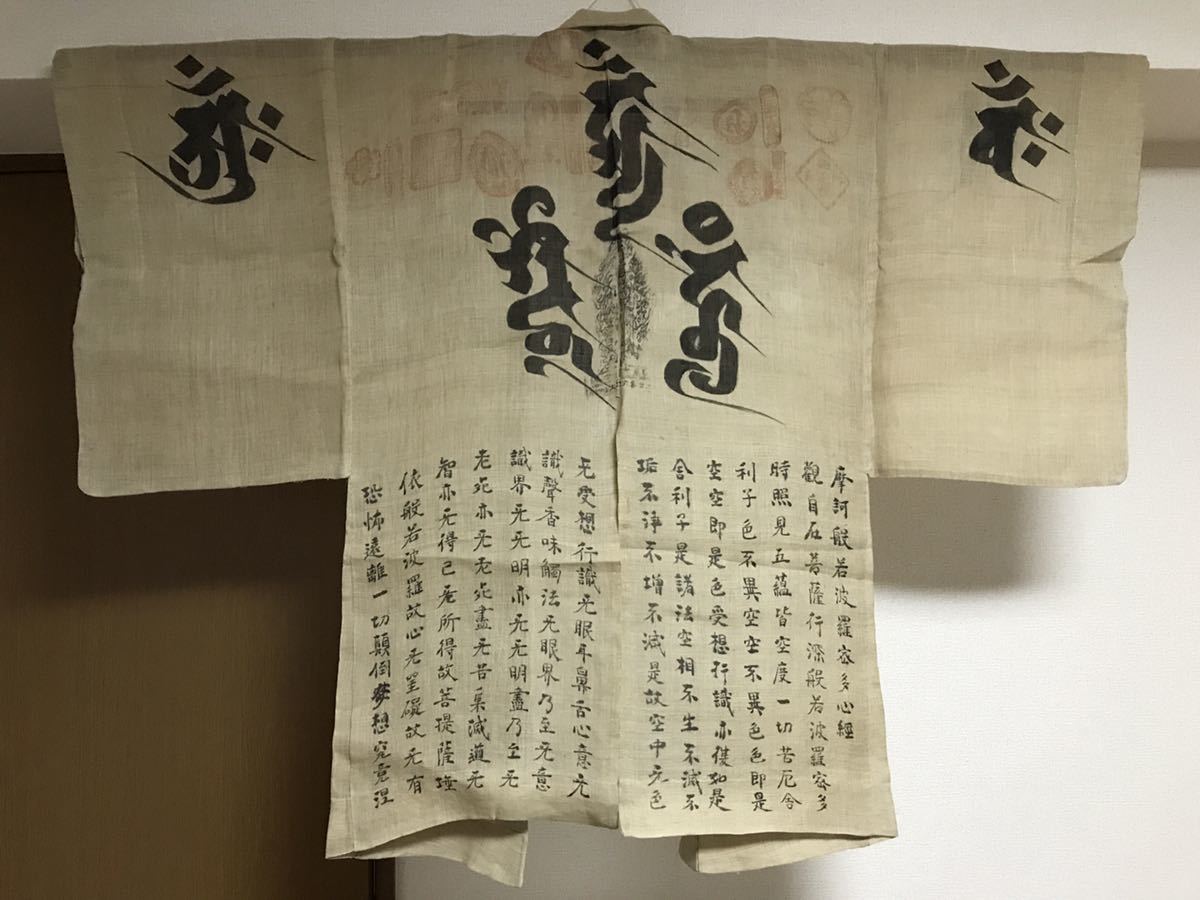 摩訶般若波羅宻多心經
觀自在菩薩行深般若波羅宻多
時照見五蘊皆空度一切苦厄舎
利子色不異空空不異色色即是
空空即是色受想行識亦復如是
舎利子是諸法空相不生不滅不
垢不浄不増不減是故空中无色
无受想行識无眼耳鼻舌心意无
識聲香味觸法无眼界乃至无意
識界无无明亦无无明盡乃至无
老死亦无老死盡无苦集滅道无
智亦无得已无所得故菩提薩埵
依般若波羅故心无罣礙故无有
恐怖遠離一切顛倒夢想究竟涅